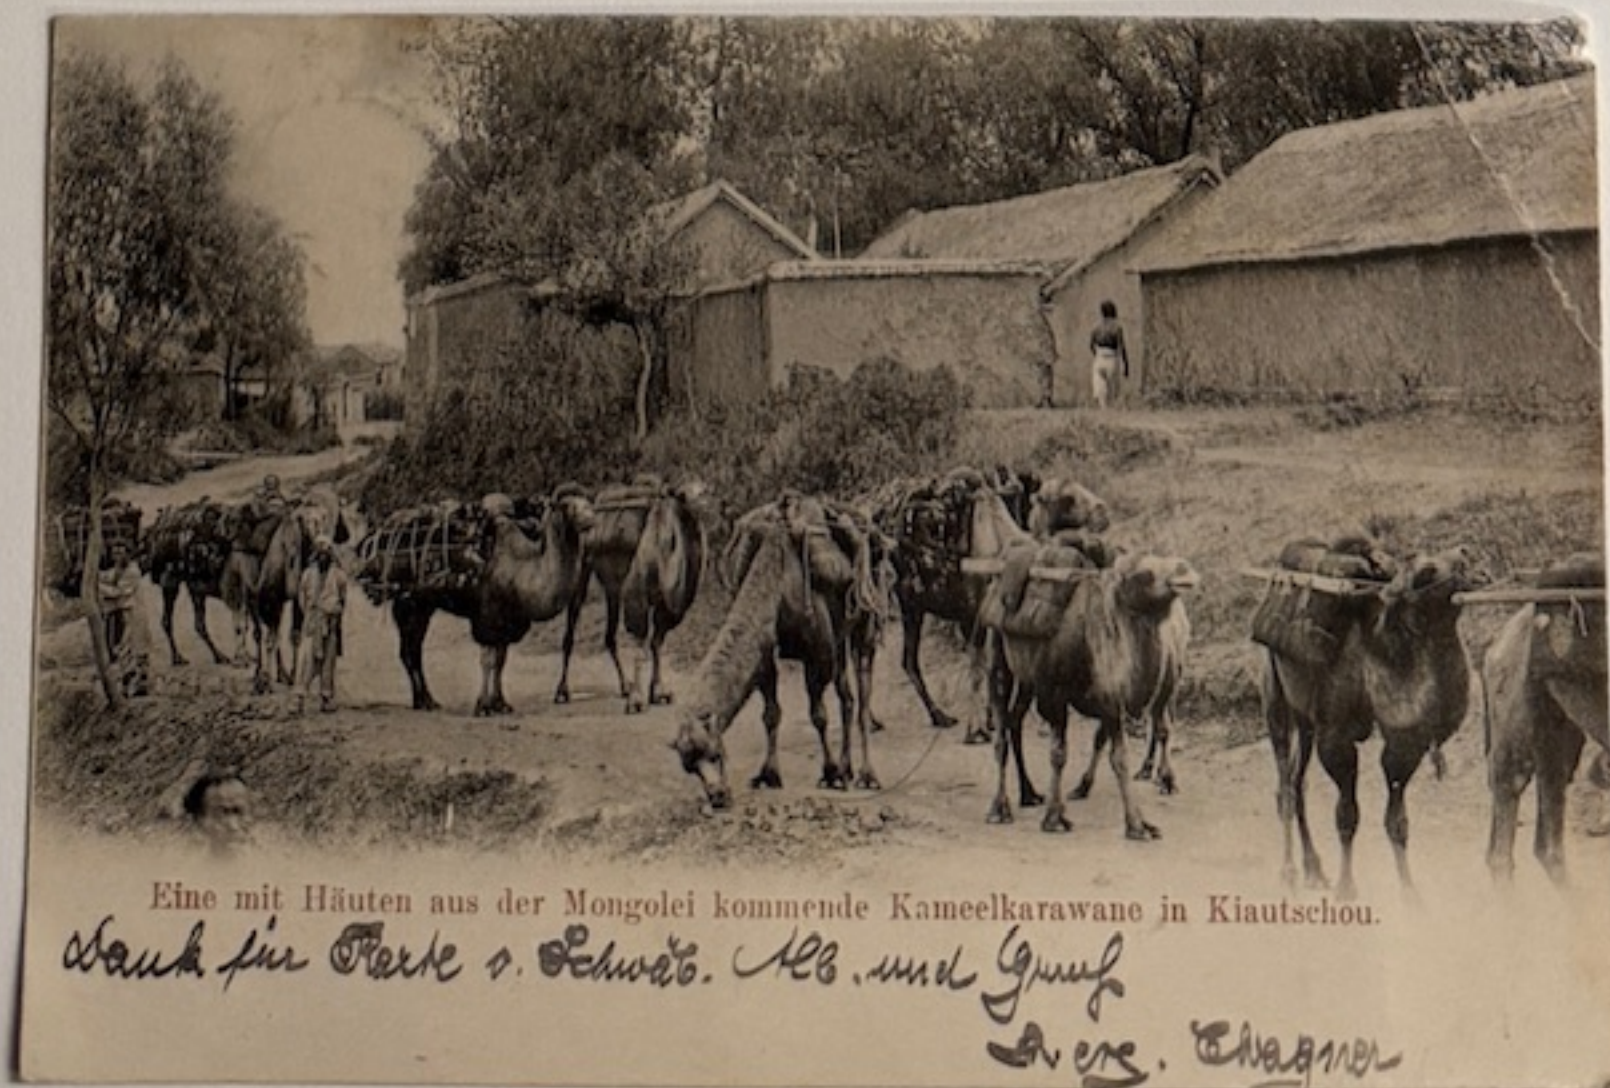 Eine mit Häuten aus der Mongolei kommende Kameelkarawane in Kiautschou.
Dank für Karte v. Schwäb. Alb. und Gruß